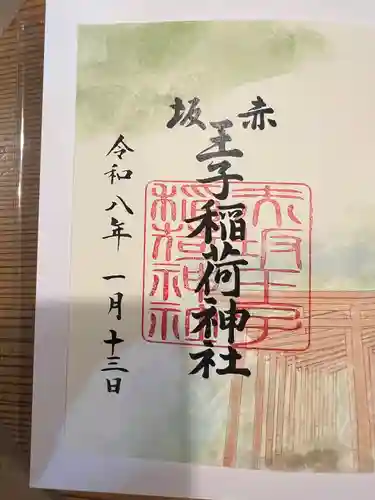 赤坂
王子稲荷神社
令和八年 一月十三日
赤坂王子
稲荷神社